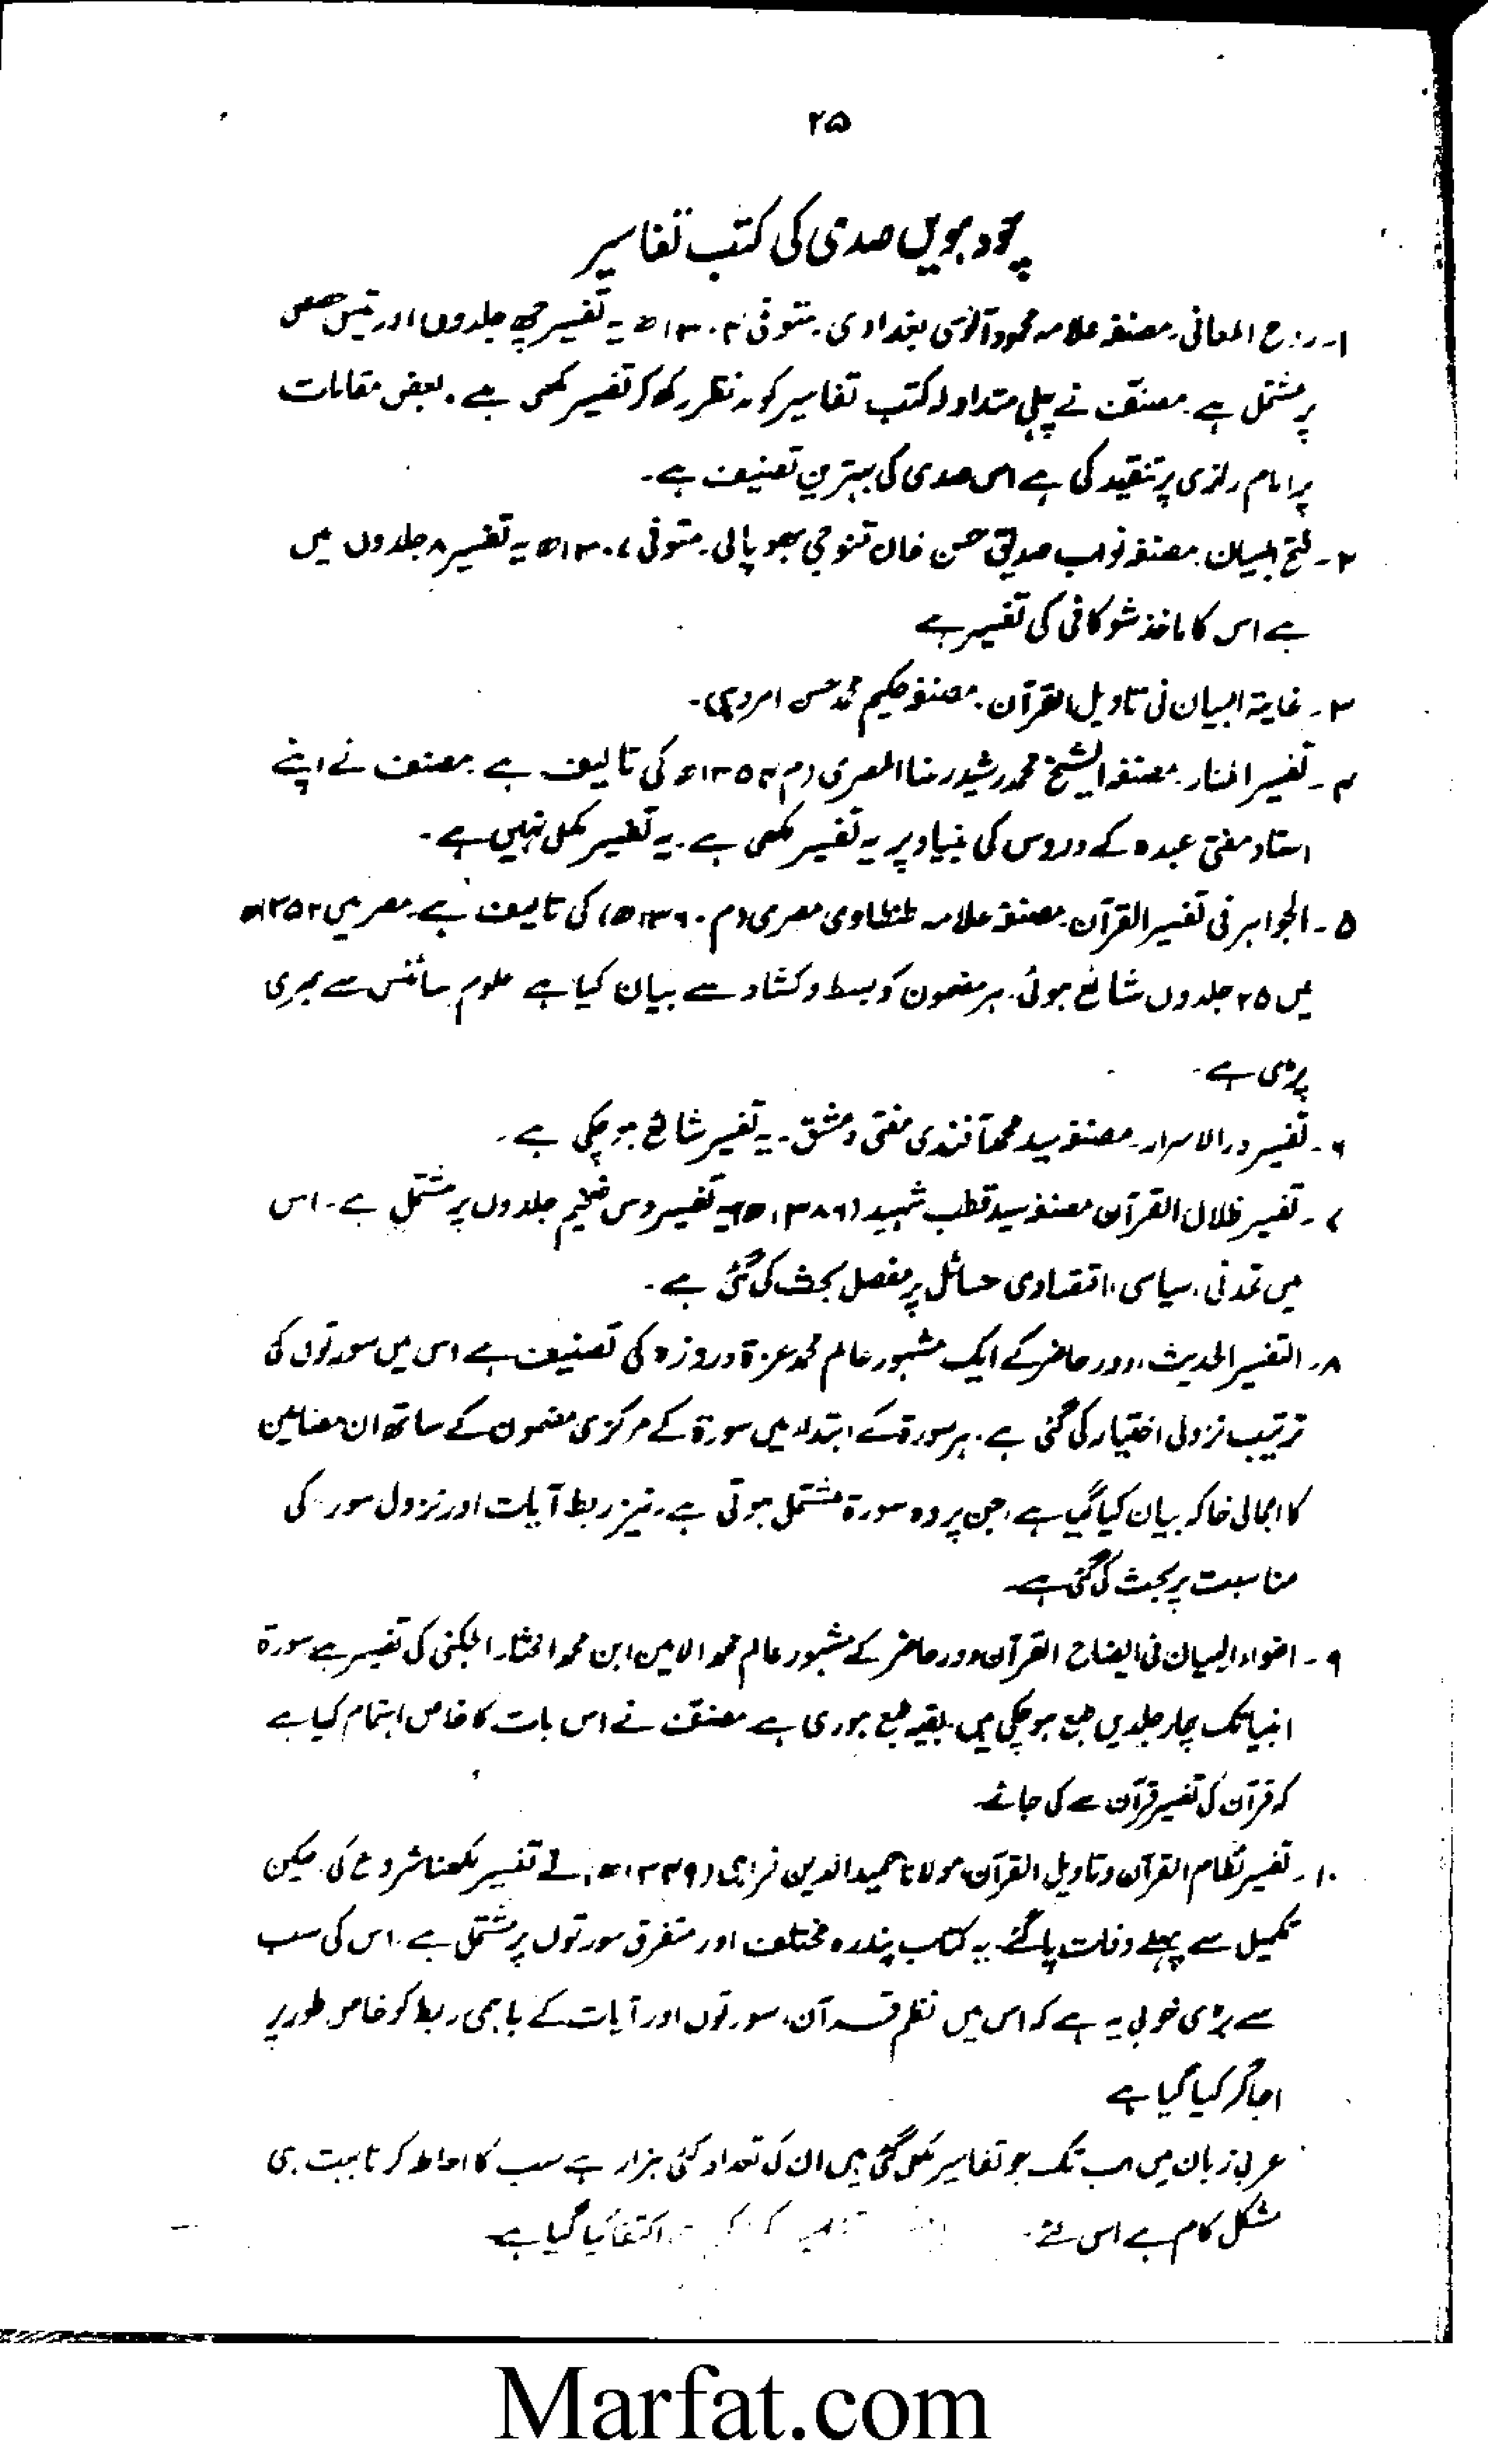 ۲۵
چودہویں صدی کی کتب تفاسیر
۱۔ روح المعانی۔ مصنفہ علامہ محمود آلوسی بغدادی۔ متوفی ۱۳۰۴ھ یہ تفسیر چھ جلدوں اور تیس حصص
پر مشتمل ہے۔ مصنف نے پہلی متداولہ کتب تفاسیر کو مد نظر رکھ کر تفسیر لکھی ہے۔ بعض مقامات
پر امام رازی پر تنقید کی ہے اس صدی کی بہترین تصنیف ہے۔
۲۔ فتح البیان۔ مصنفہ نواب صدیق حسن خاں قنوجی بھوپالی۔ متوفی ۱۳۰۷ھ یہ تفسیر ۸ جلدوں میں
ہے اس کا ماخذ شوکانی کی تفسیر ہے
۳۔ غایۃ البیان فی تاویل القرآن۔ مصنفہ حکیم محمد حسن امروہی۔
۴۔ تفسیر المنار۔ مصنفہ الشیخ محمد رشید رضا المصری (م ۱۳۵۴ء کی تالیف ہے۔ مصنف نے اپنے
استاد مفتی عبدہ کے دروس کی بنیاد پر یہ تفسیر لکھی ہے۔ یہ تفسیر مکمل نہیں ہے۔
۵۔ الجواہر فی تفسیر القرآن۔ مصنفہ علامہ طنطاوی مصری (م ۱۳۶۰ھ) کی تالیف ہے۔ مصر میں ۱۳۵۲ھ
میں ۲۵ جلدوں شائع ہوئی۔ ہر مضمون کو بسط و کشاد سے بیان کیا ہے علوم سائنس سے بھری
پڑی ہے۔
۶۔ تفسیر در الاسرار۔ مصنفہ سید محمد آفندی مفتی دمشق۔ یہ تفسیر شائع ہو چکی ہے۔
۷۔ تفسیر ظلال القرآن مصنفہ سید قطب شہید (۱۳۸۶ھ) یہ تفسیر دس ضخیم جلدوں پر مشتمل ہے۔ اس
میں تمدنی، سیاسی، اقتصادی مسائل پر مفصل بحث کی گئی ہے۔
۸۔ التفسیر الحدیث، دور حاضر کے ایک مشہور عالم محمد عزۃ دروزہ کی تصنیف ہے اس میں سورتوں کی
ترتیب نزولی اختیار کی گئی ہے۔ ہر سورۃ کے ابتداء میں سورۃ کے مرکزی مضمون کے ساتھ ان مضامین
کا اجمالی خاکہ بیان کیا گیا ہے، جن پر وہ سورۃ مشتمل ہوتی ہے۔ نیز ربط آیات اور نزول سور کی
مناسبت پر بحث کی گئی ہے۔
۹۔ اضواء البیان فی ایضاح القرآن دور حاضر کے مشہور عالم محمد الامین ابن محمد المختار الجکنی کی تفسیر ہے سورۃ
انبیا تک چار جلدیں طبع ہو چکی ہیں۔ بقیہ طبع ہو رہی ہے مصنف نے اس بات کا خاص اہتمام کیا ہے
کہ قرآن کی تفسیر قرآن سے کی جائے۔
۱۰۔ تفسیر نظام القرآن و تاویل القرآن مولانا حمید الدین فراہی (۱۳۴۹ھ) نے تفسیر لکھنا شروع کی۔ لیکن
تکمیل سے پہلے وفات پا گئے۔ یہ کتاب پندرہ مختلف اور متفرق سورتوں پر مشتمل ہے۔ اس کی سب
سے بڑی خوبی یہ ہے کہ اس میں نظم قرآن، سورتوں اور آیات کے باہمی ربط کو خاص طور پر
اجاگر کیا گیا ہے
عربی زبان میں اب تک جو تفاسیر لکھی گئی ہیں ان کی تعداد کئی ہزار ہے سب کا احاطہ کرنا بہت ہی
مشکل کام ہے اس لئے اکتفا کیا گیا ہے۔
Marfat.com